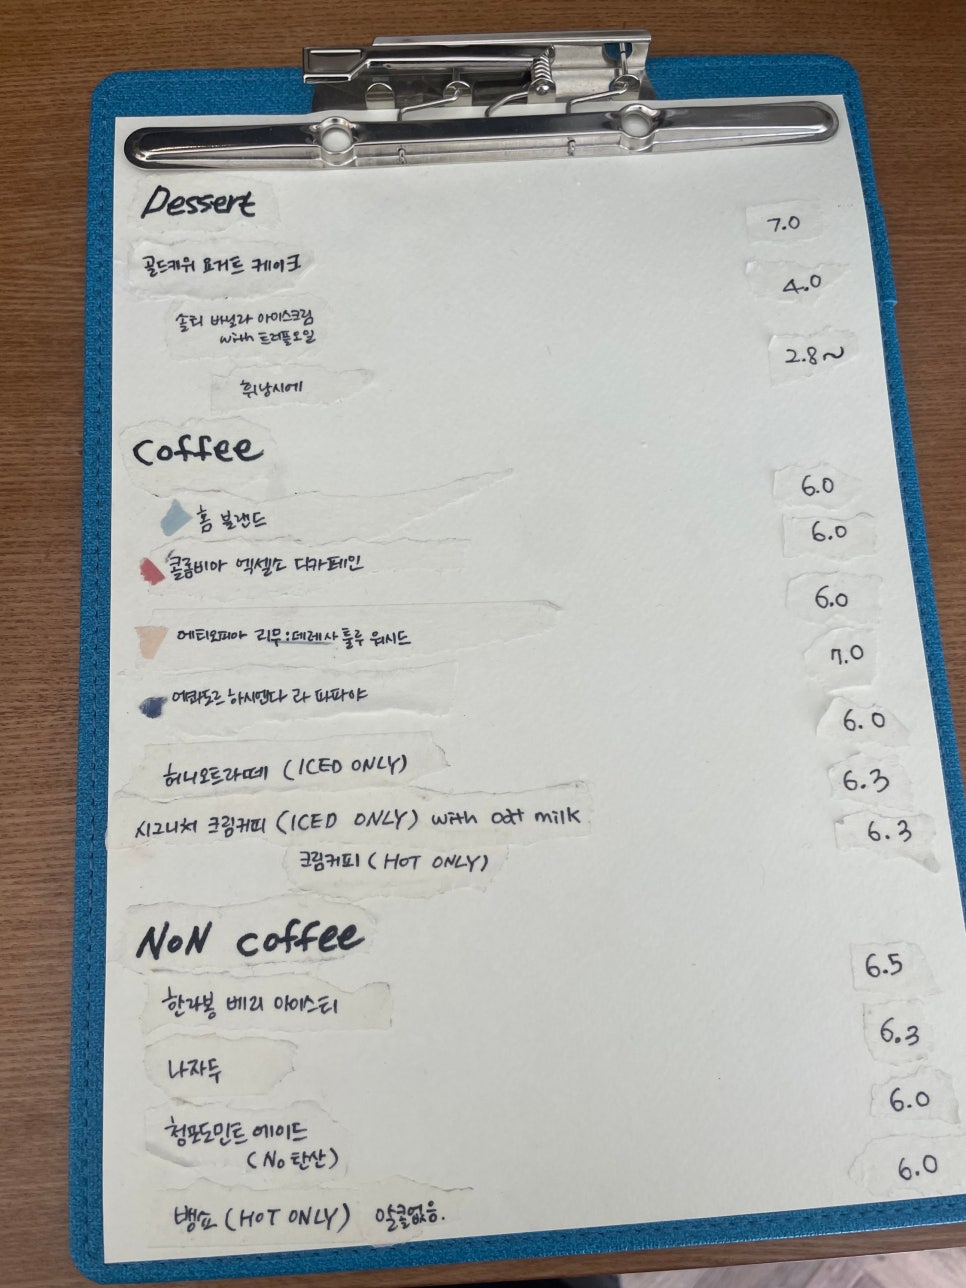 Dessert
골드키위 요거트 케이크 7.0
솔티 바닐라 아이스크림 4.0
with 트러플오일
휘낭시에 2.8~
Coffee
홈 블랜드 6.0
콜롬비아 엑셀소 디카페인 6.0
에티오피아 리무:데레사 툴루 워시드 6.0
에콰도르 하시엔다 라 파파야 7.0
허니오트라떼 (ICED ONLY) 6.0
시그니처 크림커피 (ICED ONLY) with oat milk 6.3
크림커피 (HOT ONLY) 6.3
NoN coffee
한라봉 베리 아이스티 6.5
나자두 6.3
청포도민트에이드 6.0
(No탄산)
뱅쇼 (HOT ONLY) 알콜없음. 6.0